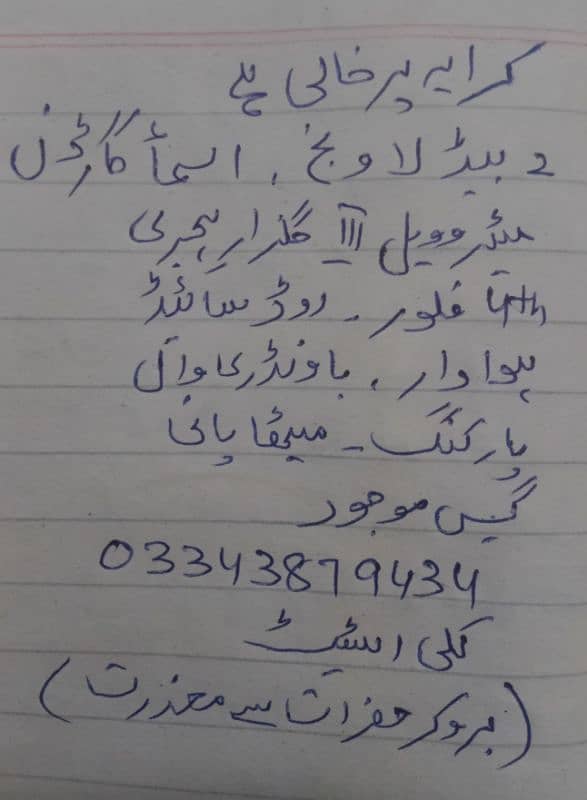 کرایہ پر خالی ہے
2 بیڈ لاونج ، اسمأ گارڈن
میٹروویل III گلزار ہجری
4th فلور ۔ روڈ سائیڈ
ہوا دار ، باونڈری وال
پارکنگ ۔ میٹھا پانی
گیس موجود
03343879434
علی اسٹیٹ
(بروکر حضرات سے معذرت)